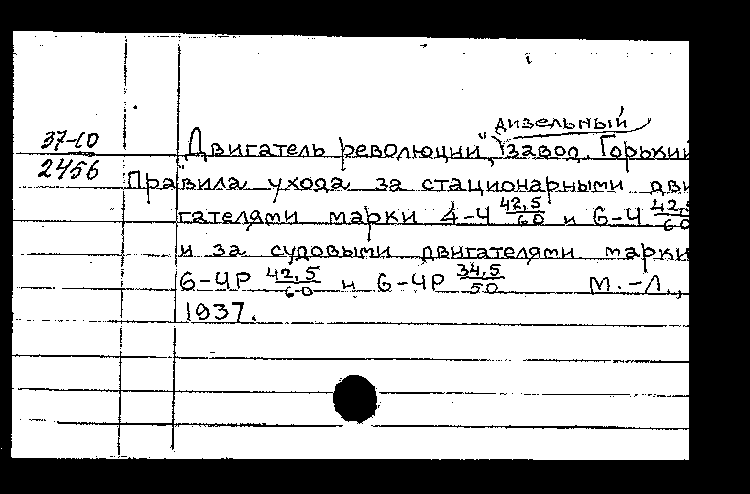 37-10
2456
дизельный
"Двигатель революции", завод. Горький
Правила ухода за стационарными дви
гателями марки 4-Ч 42,5/60 и 6-Ч 42,5/60
и за судовыми двигателями марки
6-ЧР 42,5/60 и 6-ЧР 34,5/50 М.-Л.,
1937.